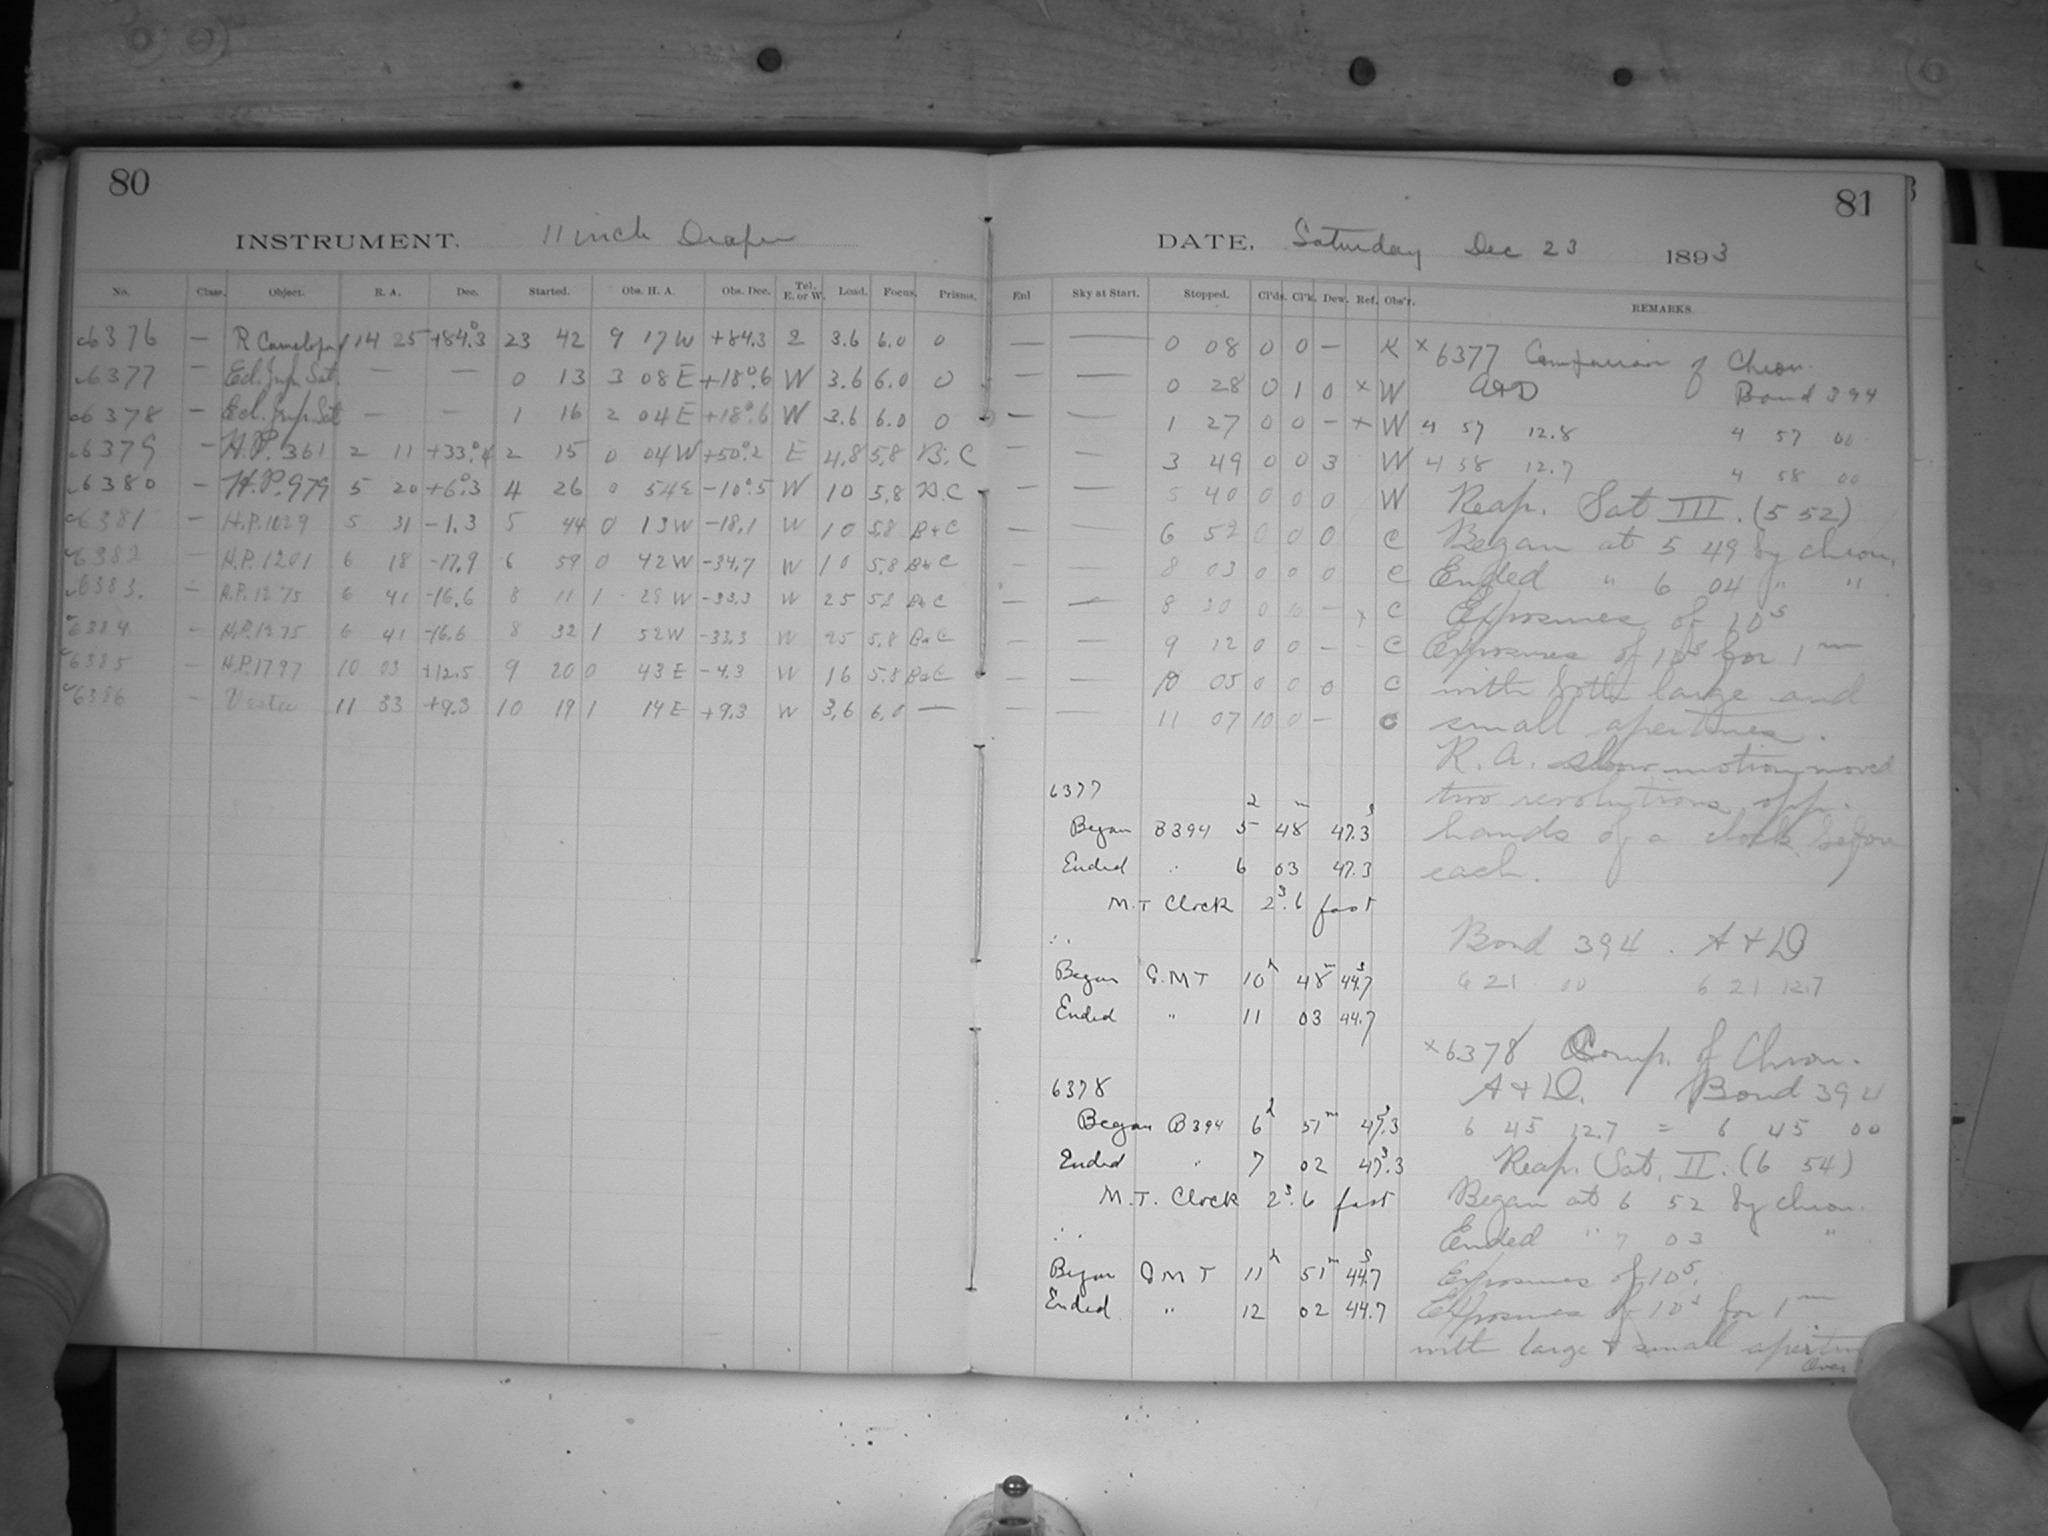 80
INSTRUMENT. 11 inch Draper
No. Class. Object. R. A. Dec. Started. Obs. H. A. Obs. Dec. Tel. E. or W. Load. Focus. Prisms.
c6376 — R Camelopard 14 25 +84°.3 23 42 9 17 W +84.3 2 3.6 6.0 0
c6377 — Ecl. Jup. Sat. — — 0 13 3 08 E +18°.6 W 3.6 6.0 0
c6378 — Ecl. Jup. Sat — — 1 16 2 04 E +18°.6 W 3.6 6.0 0
c6379 — H.P. 361 2 11 +33°.4 2 15 0 04 W +50°.2 E 4.8 5.8 B. C
c6380 — H.P. 979 5 20 +6°.3 4 26 0 54 E -10°.5 W 10 5.8 B. C
c6381 — H.P. 1029 5 31 -1.3 5 44 0 13 W -18.1 W 10 5.8 B+C
c6382 — H.P. 1201 6 18 -17.9 6 59 0 42 W -34.7 W 10 5.8 B+C
c6383. — H.P. 1275 6 41 -16.6 8 11 1 29 W -33.3 W 25 5.8 B+C
c6384 — H.P. 1275 6 41 -16.6 8 32 1 52 W -33.3 W 25 5.8 B+C
c6385 — H.P. 1797 10 03 +12.5 9 20 0 43 E -4.3 W 16 5.8 B+C
c6386 — Vesta 11 33 +9.3 10 19 1 14 E +9.3 W 3.6 6.0 —
81
DATE. Saturday Dec 23 1893
Enl Sky at Start. Stopped. Cl'ds. Cl'k. Dew. Ref. Obs'r. REMARKS.
— — 0 08 0 0 — K
— — 0 28 0 1 0 x W
— — 1 27 0 0 — x W
— — 3 49 0 0 3 W
— — 5 40 0 0 0 W
— — 6 52 0 0 0 C
— — 8 03 0 0 0 C
— — 8 30 0 0 — x C
— — 9 12 0 0 — - C
— — 10 05 0 0 0 C
— — 11 07 10 0 — C
x 6377 Comparison of Chron.
A+D Bond 394
4 57 12.8 4 57 00
4 58 12.7 4 58 00
Reap. Sat III. (5 52)
Began at 5 49 by chron.
Ended " 6 04 " "
Exposures of 10s
Exposures of 10s for 1m
with both large and
small apertures.
R. A. slow motion moved
two revolutions opp.
hands of a clock before
each.
Bond 394. A + D
6 21 00 6 21 12.7
x 6378 Comp. of Chron.
A + D. Bond 394
6 45 12.7 = 6 45 00
Reap. Sat. II. (6 54)
Began at 6 52 by chron.
Ended " 7 03 "
Exposures of 10s.
Exposures of 10s for 1m
with large + small apertu
Over
6377
Began B394 5 48m 47.3s
Ended " 6 03 47.3
M.T Clock 2s.6 fast
∴
Began G.M T 10h 48m 44.7s
Ended " 11 03 44.7
6378
Began B394 6h 51m 47.3s
Ended " 7 02 47.3s
M.T. Clock 2s.6 fast
∴
Began G M T 11h 51m 44.7s
Ended " 12 02 44.7